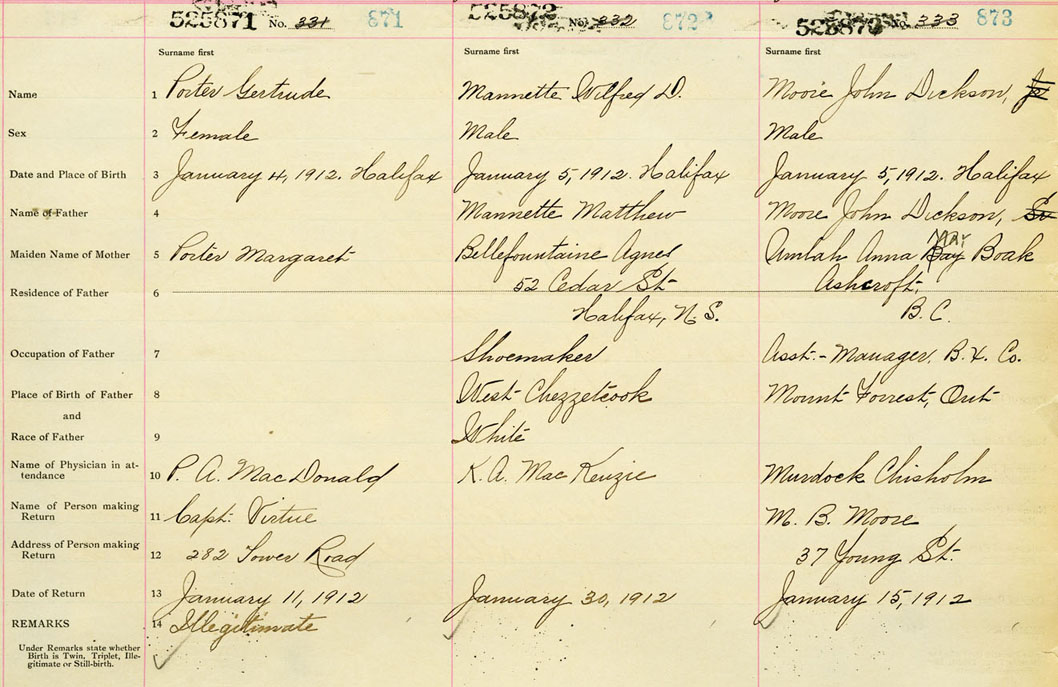 525871 No. 331 871 No. 332 872 No. 333 873
Surname first Surname first Surname first
Name 1 Porter Gertrude Mannette Wilfred D. Moore John Dickson, Jr
Sex 2 Female Male Male
Date and Place of Birth 3 January 4, 1912. Halifax January 5, 1912. Halifax January 5, 1912. Halifax
Name of Father 4 Mannette Matthew Moore John Dickson, Sr
Maiden Name of Mother 5 Porter Margaret Bellefountaine Agnes Amlah Anna May Boak
Residence of Father 6 52 Cedar St- Ashcroft,
Halifax, N.S. B.C.
Occupation of Father 7 Shoemaker Asst.- Manager, B.X. Co.
Place of Birth of Father 8 West Chezzetcook Mount Forrest, Ont
and
Race of Father 9 White
Name of Physician in at-
tendance 10 P. A. MacDonald K. A. MacKenzie Murdock Chisholm
Name of Person making
Return 11 Capt. Virtue M. B. Moore
Address of Person making
Return 12 282 Tower Road 37 Young St.
Date of Return 13 January 11, 1912 January 30, 1912 January 15, 1912
REMARKS 14 Illegitimate
Under Remarks state whether
Birth is Twin, Triplet, Ille-
gitimate or Still-birth.